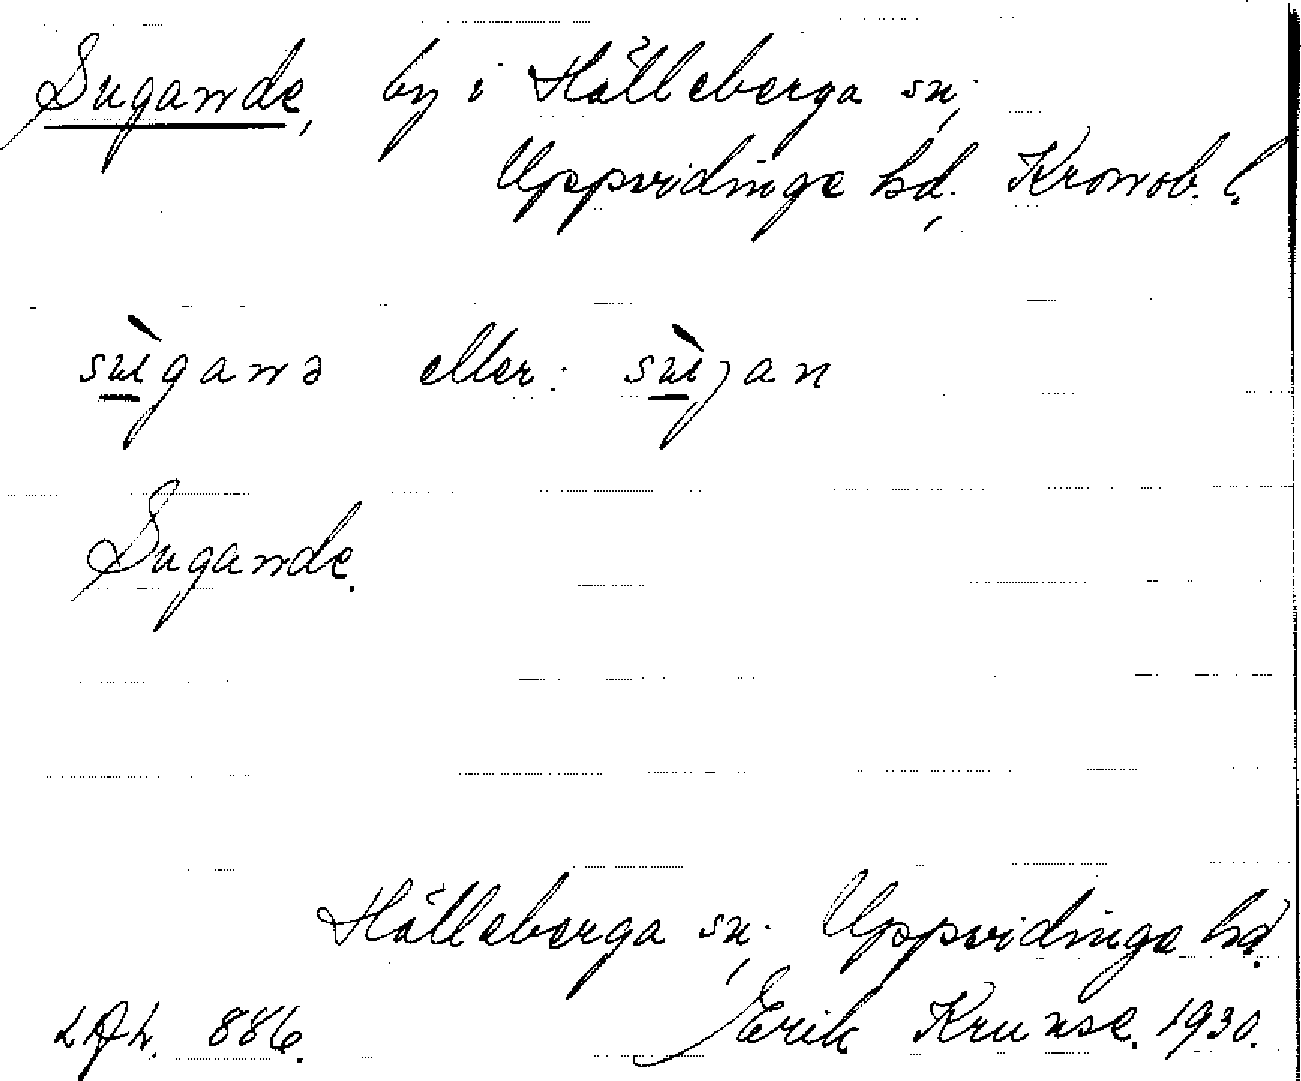 Sugande, by i Hälleberga sn,
Uppvidinge hd, Kronob. l.
sùganə eller: sùgan
Sugande.
Hälleberga sn, Uppvidinge hd.
LAL. 886. Erik Kruuse. 1930.